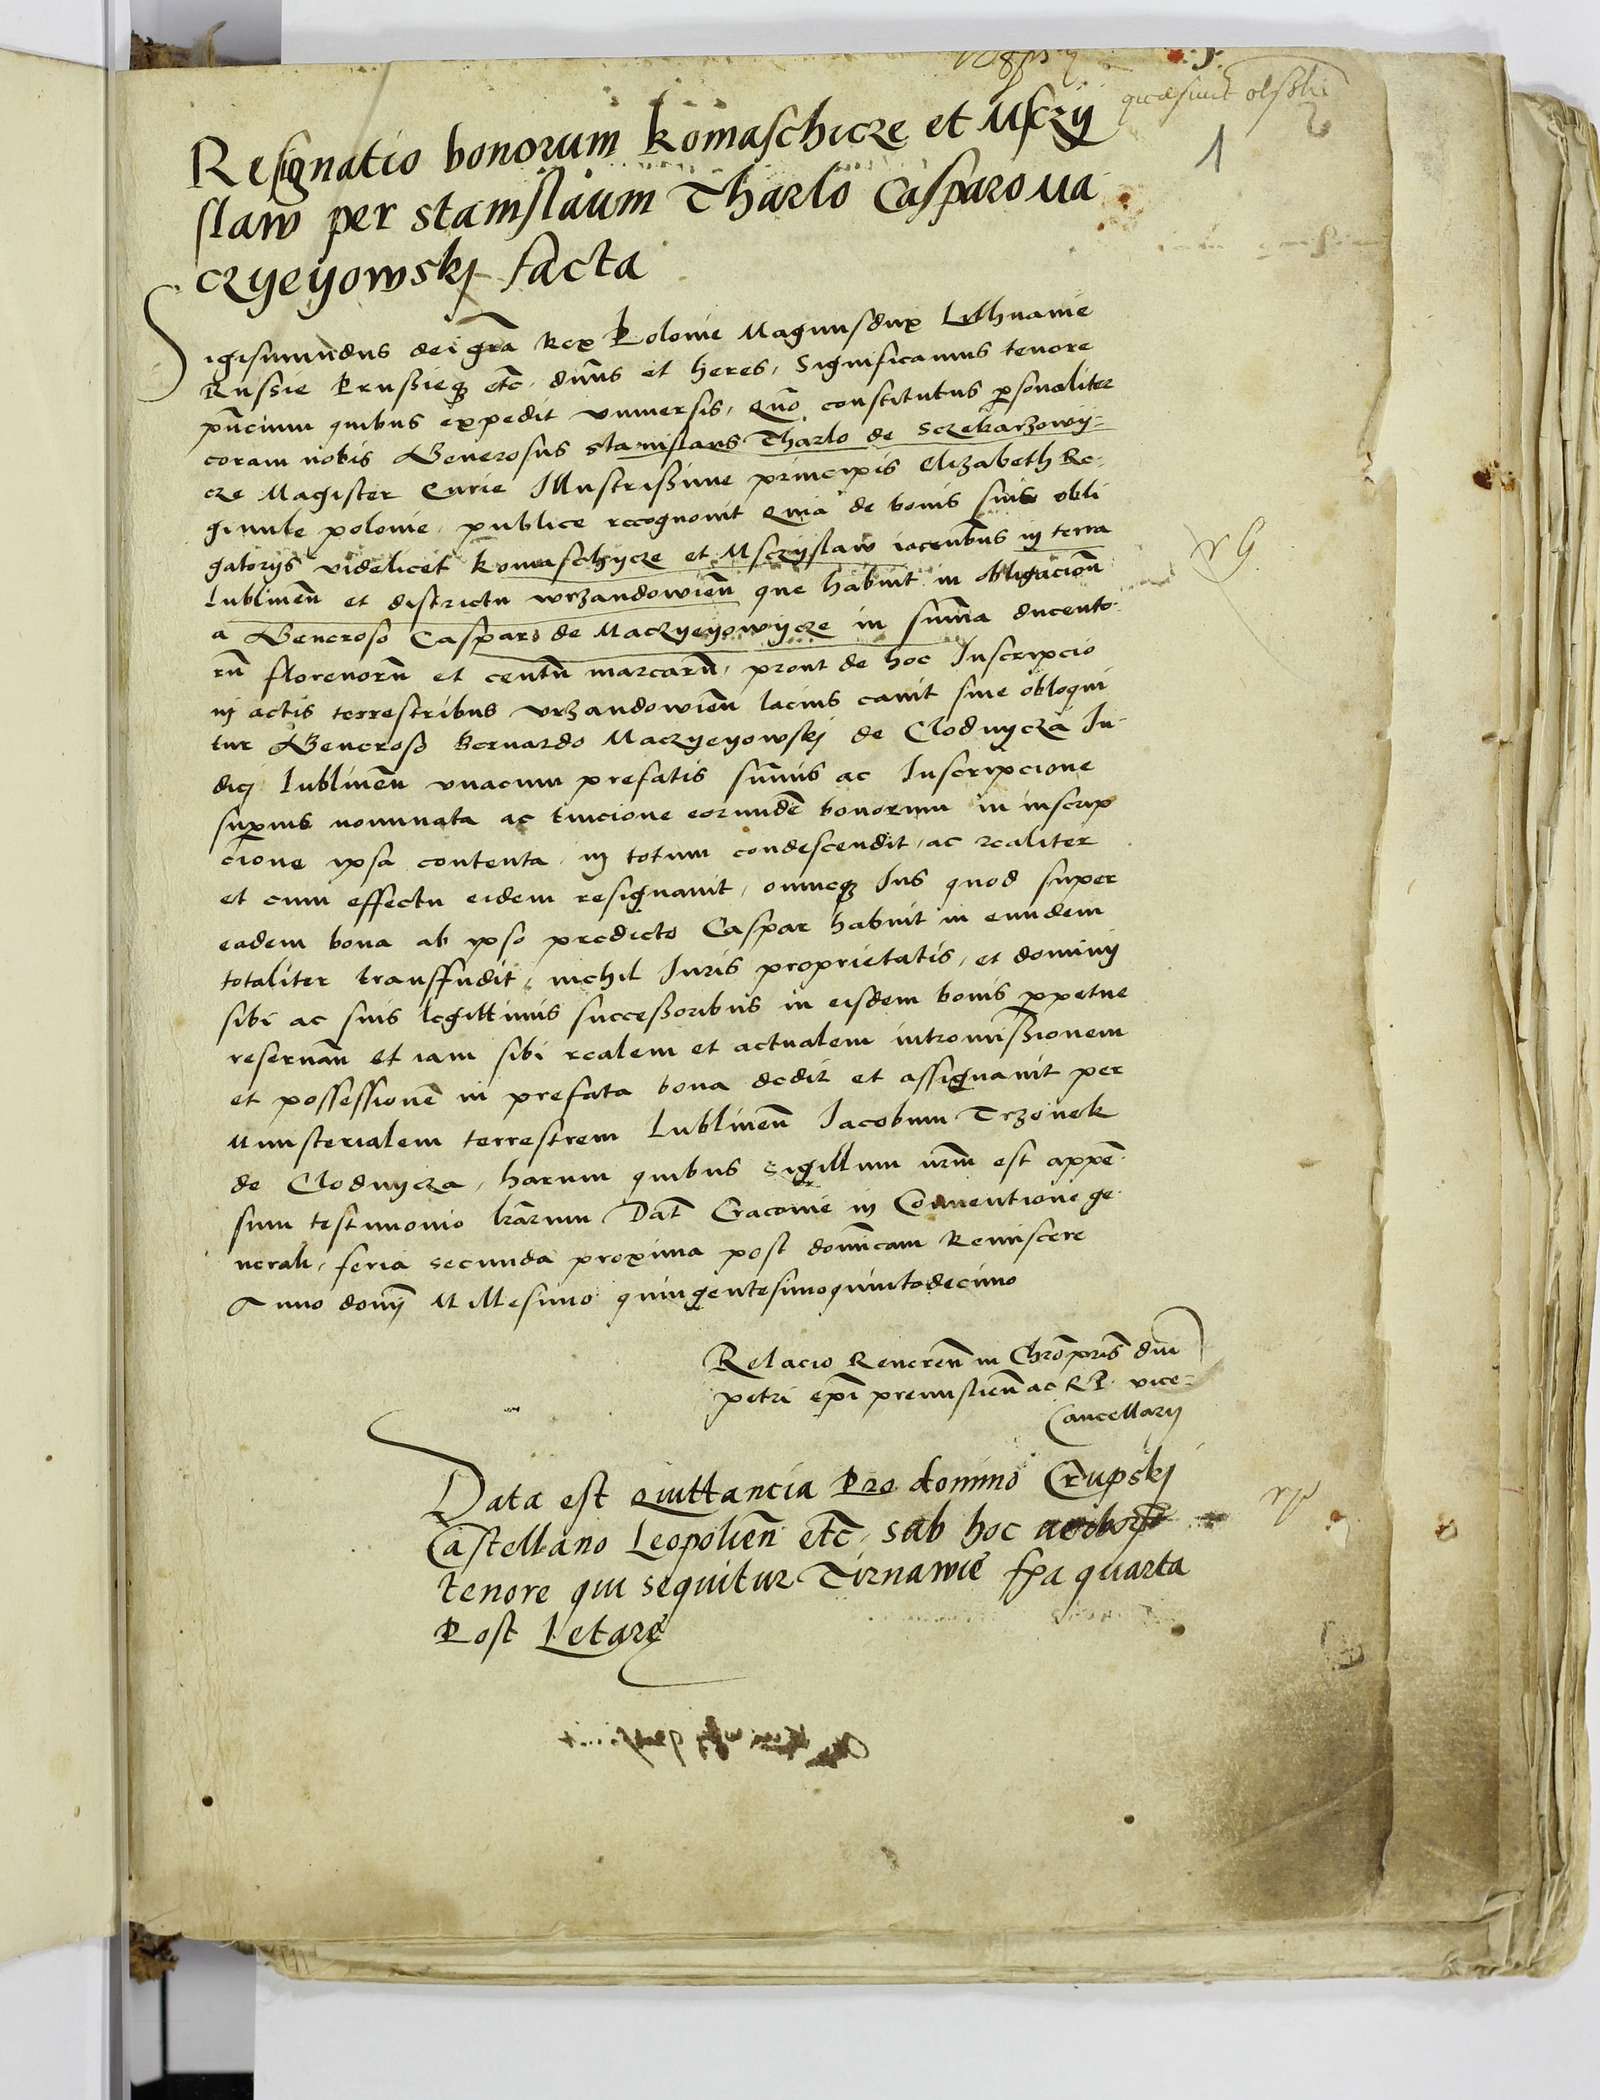 1
Resignatio bonorum komaschicze et Msczij
slaw per stanislaum Tharlo Casparo Ma
czyeyowskj facta
Sigismundus dei gra Rex Polonie Magnusdux Lithuanie
Russie Prussieqz etc. dnns et heres, Significamus tenore
pncium quibus expedit vniuersis, Quo constitutus personaliter
coram nobis Generosus Stanislaus Tharlo de Sczekarzowy-
cze Magister Curie Illustrissime principis Elizabeth Re-
ginule polonie, publice recognouit Quia de bonis suis obli
gatorijs videlicet komaschycze et Msczyslaw iacentibus in terra
Lublinen et districtu wrzandowien que habuit in obligacione
a Generoso Casparo de Maczyeyowycze in summa ducento-
rum florenorum et centum marcarum, prout de hoc Inscripcio
in actis terrestribus vrzandowien lacius canit siue obloqui
tur Generoso Bernardo Maczyeyowskj de Clodnycza Iu-
dicj Lublinen vnacum prefatis summis ac Inscripcione
superius nominata ac tuicione eorunde bonorum in inscrip
cione ipsa contenta in totum condescendit, ac realiter
et cum effectu eidem resignauit, omneqz Ius quod super
eadem bona ab ipso predicto Caspar habuit in eundem
totaliter transffudit, nichil Iuris proprietatis, et dominij
sibi ac suis legittimis successoribus in eisdem bonis perpetue
reseruan et iam sibi realem et actualem intromissionem
et possessione in prefata bona dedit et assignauit per
Ministerialem terrestrem Lublinen Iacobum Trzonek
de Clodnycza, harum quibus Sigillum nrm est appen
sum testimonio lrarum Dat Cracouie in Conuentione ge
nerali, feria secunda proxima post dominicam Reminiscere
Anno domij Millesimo quingentesimoquintodecimo
Relacio Reueren in Chro pris dni
petri epi premislien ac R P vice-
Cancellarij
Data est Quittancia Pro domino Crupskj
Castellano Leopolien etc, sub hoc
tenore qui sequitur Tirnawie fra quarta
Post Letare